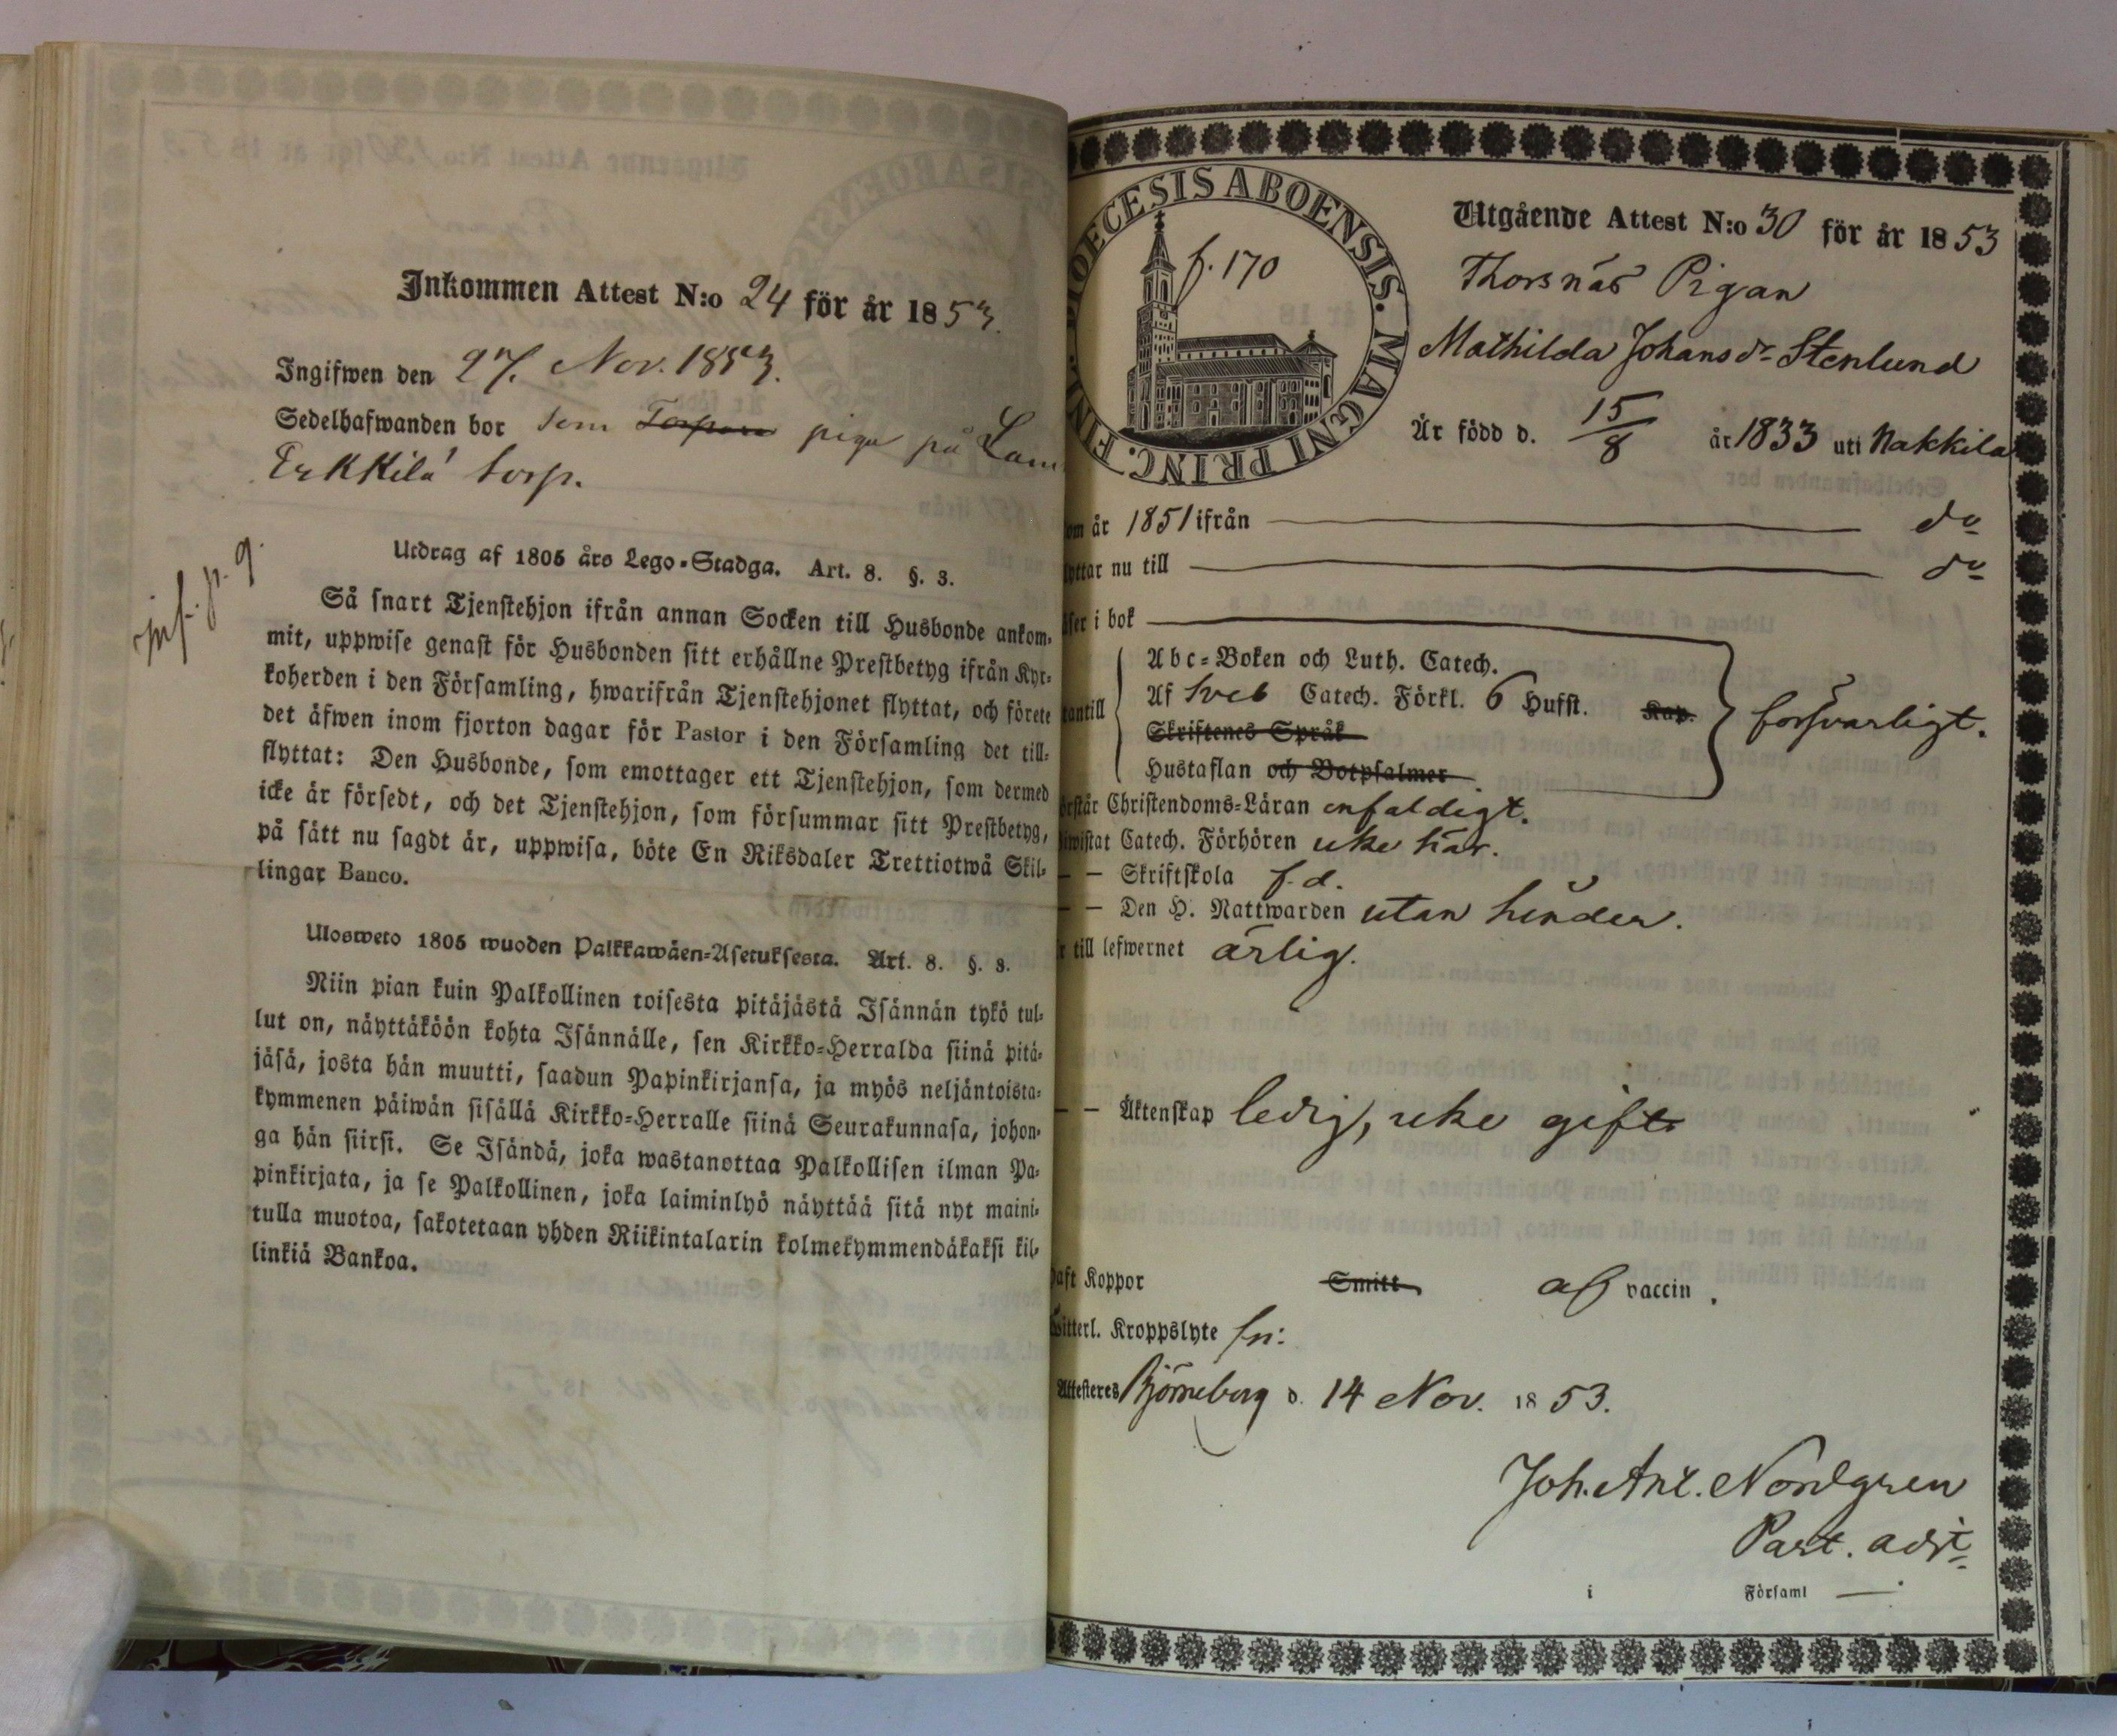 Inkommen Attest N:o 24 för år 1853.
Ingifwen den 27. Nov. 1853.
Sedelhafwanden bor som Torpare piga på Lam
Erkkilä torp.
inf. p. 9.
Utdrag af 1805 års Lego-Stadga. Art. 8. §. 3.
Så snart Tjenstehjon ifrån annan Socken till Husbonde ankom-
mit, uppwise genast för Husbonden sitt erhållne Prestbetyg ifrån Kyr-
koherden i den Församling, hwarifrån Tjenstehjonet flyttat, och förete
det äfwen inom fjorton dagar för Pastor i den Församling det till-
flyttat: Den Husbonde, som emottager ett Tjenstehjon, som dermed
icke är försedt, och det Tjenstehjon, som försummar sitt Prestbetyg,
på sätt nu sagdt är, uppwisa, böte En Riksdaler Trettiotwå Skil-
lingar Banco.
Ulosweto 1805 wuoden Palkkawäen-Asetuksesta. Art. 8. §. 3.
Niin pian kuin Palkollinen toisesta pitäjästä Isännän tykö tul-
lut on, näyttäköön kohta Isännälle, sen Kirkko-Herralda siinä pitä-
jäsä, josta hän muutti, saadun Papinkirjansa, ja myös neljäntoista-
kymmenen päiwän sisällä Kirkko-Herralle siinä Seurakunnasa, johon-
ga hän siirsi. Se Isändä, joka wastanottaa Palkollisen ilman Pa-
pinkirjata, ja se Palkollinen, joka laiminlyö näyttää sitä nyt maini-
tulla muotoa, sakotetaan yhden Riikintalarin kolmekymmendäkaksi kil-
linkiä Bankoa.
DIOECESIS ABOENSIS. MAGNI PRINC. FINL.
f. 170
Utgående Attest N:o 30 för år 1853
Thorsnäs Pigan
Mathilda Johans dr Stenlund
Är född d. 15/8 år 1833 uti Nakkila
om år 1851 ifrån do
yttar nu till do
äser i bok
tantill
Abc-Boken och Luth. Catech.
Af Sveb Catech. Förkl. 6 Hufst. Kap.
Skriftenes Språk
Hustaflan och Botpsalmer.
försvarligt.
örstår Christendoms-Läran enfaldigt.
iwistat Catech. Förhören icke här.
— — Skriftskola f. d.
— — Den H. Nattwarden utan hinder.
r till lefwernet ärlig.
— — Äktenskap ledig, icke gift
haft Koppor Smitt af vaccin.
Witterl. Kroppslyte fri.
Attesteres Björneborg d. 14 Nov. 1853.
Joh. Ant. Nordgren
Past. adjt
i Församl